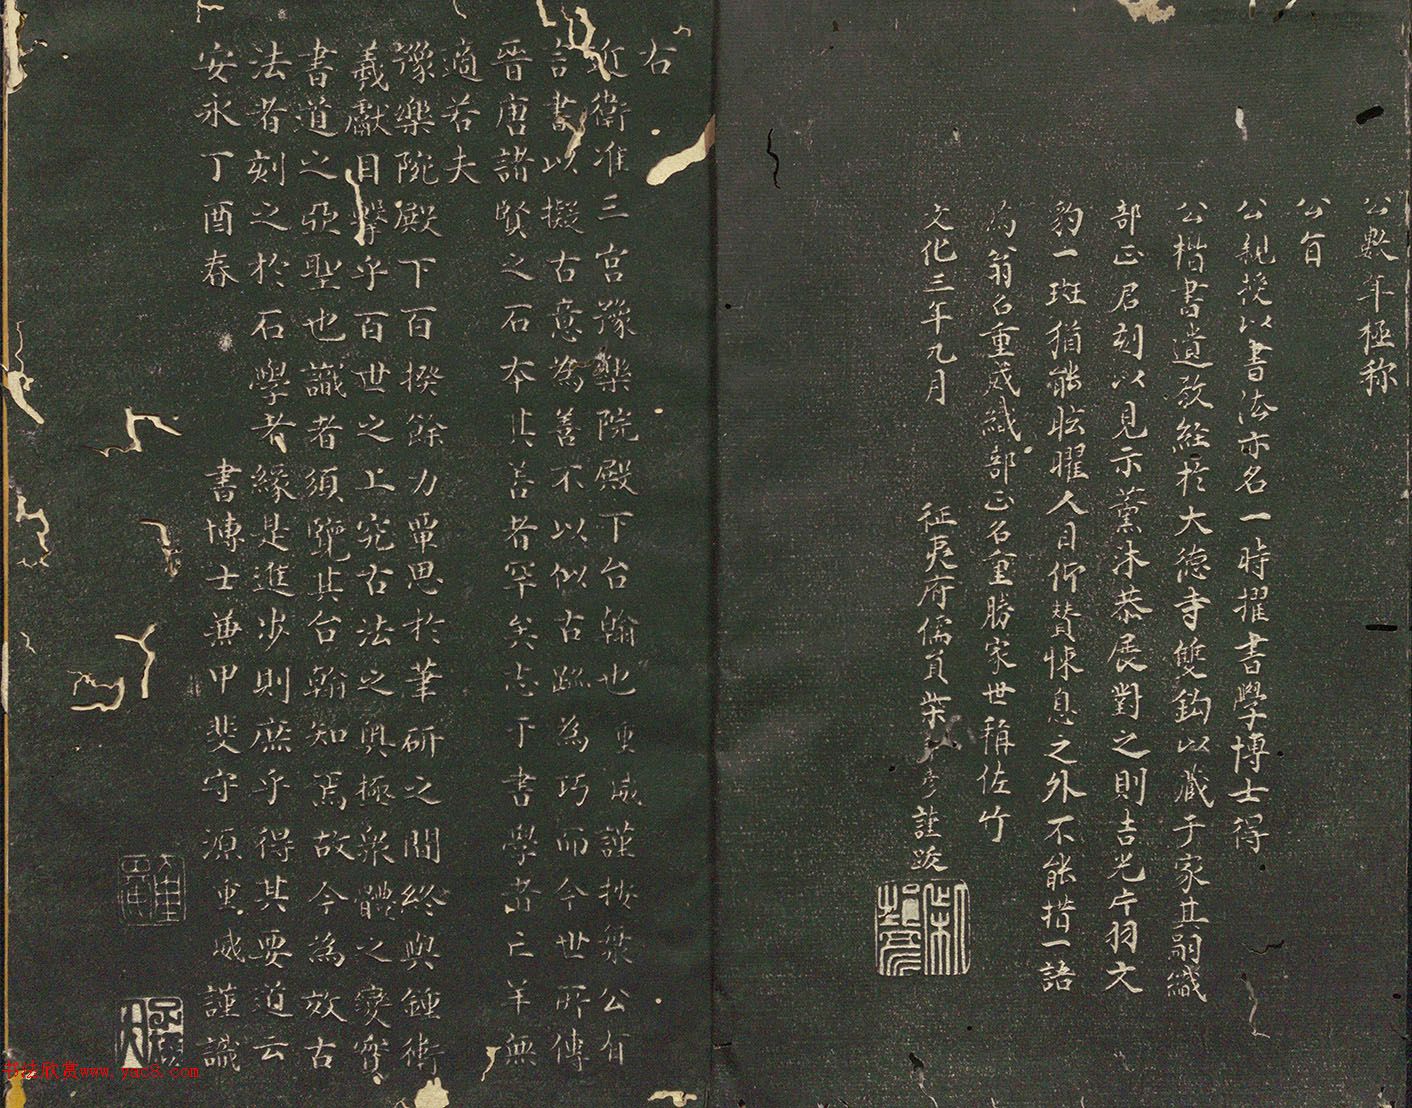 公數年極称
公旨
公親授以書法亦名一時擢書學博士得
公楷書遺教経於大徳寺雙鈎以蔵于家其嗣織
部正君刻以見示薰沐恭展對之則吉光片羽文
豹一斑猶能眩曜人目仰賛悚息之外不能措一語
為翁名重威織部正名重勝家世稱佐竹
文化三年九月
征夷府儒員柴彦謹跋
右
近衛准三宮豫樂院殿下台翰也重威謹按梁公有
言書以擬古意為善不以似古跡為巧而今世所傳
晉唐諸賢之石本其善者罕矣志于書學者亡羊無
適若夫
豫樂院殿下百揆餘力覃思於筆研之間終與鍾衛
羲獻目擊乎百世之上究古法之奥極衆體之變實
書道之亞聖也識者須覽其台翰知焉故今為效古
法者刻之於石學者緣是進步則庶乎得其要道云
安永丁酉春
書博士兼甲斐守源重威謹識
书法欣赏www.yac8.com